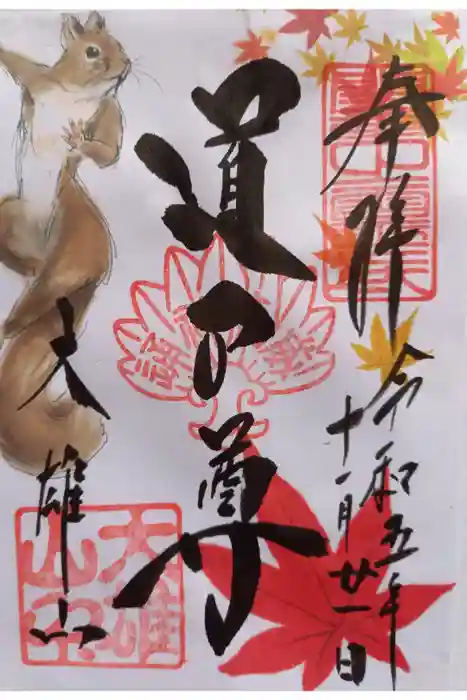 奉拝
令和五年
十一月廿一日
道了尊
大雄山
大雄
山